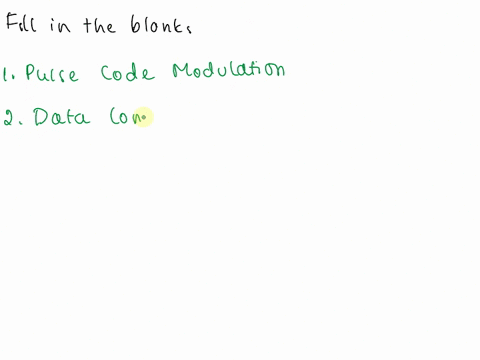 Fill in the blanks
1. Pulse Code Modulation
2. Data Con